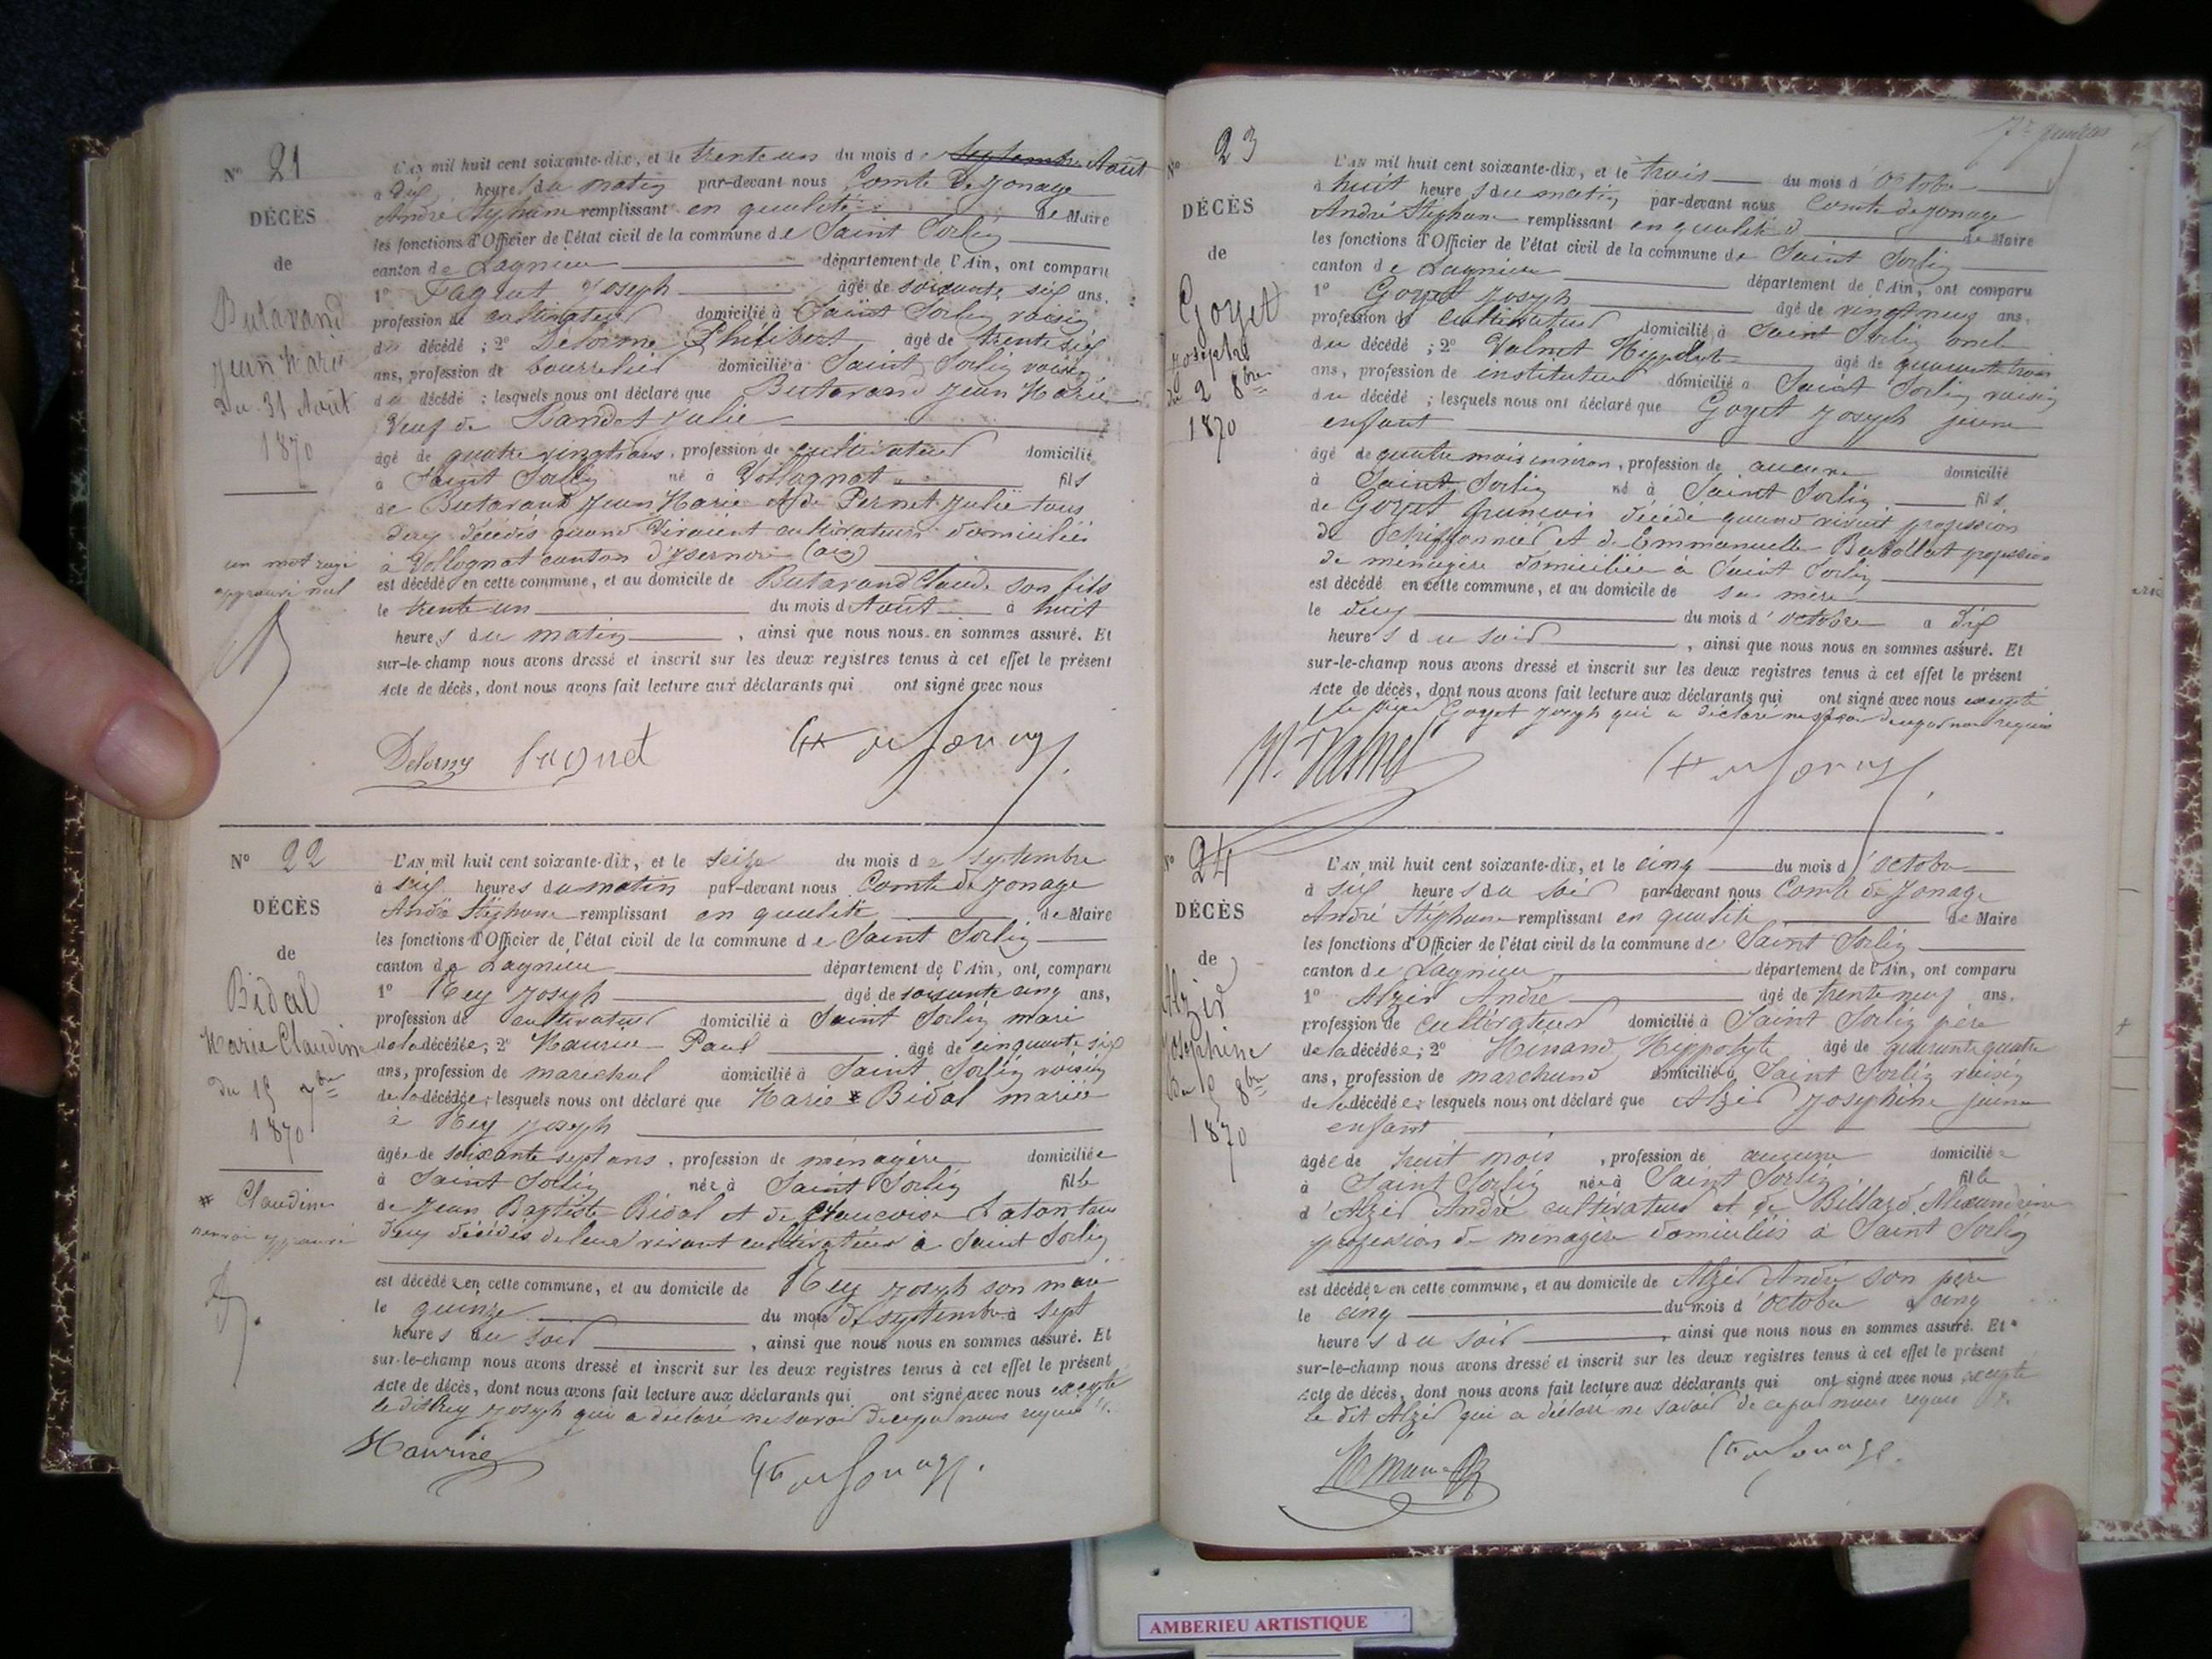 N° 21
DÉCÈS
de
Butavand
Jean Marie
Du 31 Août
1870
un mot rayé
approuvé nul
L'AN mil huit cent soixante-dix, et le trente un du mois de Septembre Août
à dix heures du matin par-devant nous Comte de Jonage
André Stéphane remplissant en qualité de Maire
les fonctions d'Officier de l'état civil de la commune de Saint Sorlin
canton de Lagnieu département de l'Ain, ont comparu
1° Fagnet Joseph âgé de soixante six ans,
profession de cultivateur domicilié à Saint Sorlin voisin
du décédé ; 2° Delorme Philibert âgé de trente six
ans, profession de bourrelier domicilié à Saint Sorlin voisin
du décédé ; lesquels nous ont déclaré que Butavand Jean Marie
Veuf de Julie
âgé de quatre vingt ans, profession de cultivateur domicilié
à Saint Sorlin né à Vollognat fils
de Butavand Jean Marie et de Pernet Julie tous
deux décédés quand vivaient cultivateurs domiciliés
à Vollognat canton d'Isernore (ain)
est décédé en cette commune, et au domicile de Butavand Claude son fils
le trente un du mois d Août à huit
heures du matin, ainsi que nous nous en sommes assuré. Et
sur-le-champ nous avons dressé et inscrit sur les deux registres tenus à cet effet le présent
Acte de décès, dont nous avons fait lecture aux déclarants qui ont signé avec nous
Delorme fagnet Cte de Jonage
N° 22
DÉCÈS
de
Bidal
Marie Claudine
du 15 7bre
1870
* Claudine
renvoi approuvé
L'AN mil huit cent soixante-dix, et le seize du mois de septembre
à six heures du matin par-devant nous Comte de Jonage
André Stéphane remplissant en qualité de Maire
les fonctions d'Officier de l'état civil de la commune de Saint Sorlin
canton de Lagnieu département de l'Ain, ont comparu
1° Rey Joseph âgé de soixante cinq ans,
profession de cultivateur domicilié à Saint Sorlin mari
de la décédée; 2° Maurice Paul âgé de cinquante six
ans, profession de marechal domicilié à Saint Sorlin voisin
de la décédée; lesquels nous ont déclaré que Marie * Bidal mariée
à Rey Joseph
âgée de soixante sept ans, profession de ménagère domiciliée
à Saint Sorlin née à Saint Sorlin fille
de Jean Baptiste Bidal et de Françoise Laton tous
deux décédés de leur vivant cultivateurs à Saint Sorlin
est décédée en cette commune, et au domicile de Rey Joseph son mari
le quinze du mois de septembre à sept
heures du soir, ainsi que nous nous en sommes assuré. Et
sur-le-champ nous avons dressé et inscrit sur les deux registres tenus à cet effet le présent
Acte de décès, dont nous avons fait lecture aux déclarants qui ont signé avec nous excepté
le dit Rey Joseph qui a déclaré ne savoir de ce par nous requis
Maurice Cte de Jonage.
N° 23
DÉCÈS
de
Goyet
Joseph
du 2 8bre
1870
L'AN mil huit cent soixante-dix, et le trois du mois d'Octobre
à huit heures du matin par-devant nous Comte de Jonage
André Stéphane remplissant en qualité de Maire
les fonctions d'Officier de l'état civil de la commune de Saint Sorlin
canton de Lagnieu département de l'Ain, ont comparu
1° Goyet Joseph âgé de vingt neuf ans,
profession de cultivateur domicilié à Saint Sorlin oncle
du décédé ; 2° Valmet Hyppolite âgé de quarante trois
ans, profession de instituteur domicilié à Saint Sorlin voisin
du décédé ; lesquels nous ont déclaré que Goyet Joseph jeune
enfant
âgé de quatre mois environ, profession de aucune domicilié
à Saint Sorlin né à Saint Sorlin fils
de Goyet François décédé quand vivait profession
de chiffonnier et de Emmanuelle profession
de ménagère domiciliée à Saint Sorlin
est décédé en cette commune, et au domicile de sa mère
le deux du mois d'octobre à dix
heures du soir, ainsi que nous nous en sommes assuré. Et
sur-le-champ nous avons dressé et inscrit sur les deux registres tenus à cet effet le présent
Acte de décès, dont nous avons fait lecture aux déclarants qui ont signé avec nous excepté
Goyet Joseph qui a déclaré ne savoir de ce par nous requis
H. Valmet Cte de Jonage.
N° 24
DÉCÈS
de
Alzir
Josephine
Du 5 8bre
1870
L'AN mil huit cent soixante-dix, et le cinq du mois d'octobre
à six heures du soir par-devant nous Comte de Jonage
André Stéphane remplissant en qualité de Maire
les fonctions d'Officier de l'état civil de la commune de Saint Sorlin
canton de Lagnieu département de l'Ain, ont comparu
1° Alzir André âgé de trente neuf ans,
profession de cultivateur domicilié à Saint Sorlin père
de la décédée; 2° Minand Hyppolyte âgé de quarante quatre
ans, profession de marchand domicilié à Saint Sorlin voisin
de la décédée; lesquels nous ont déclaré que Alzir Josephine jeune
enfant
âgée de huit mois, profession de aucune domiciliée
à Saint Sorlin née à Saint Sorlin fille
d'Alzir André cultivateur et de Billard Alexandrine
profession de ménagère domiciliés à Saint Sorlin
est décédée en cette commune, et au domicile de Alzir André son père
le cinq du mois d'octobre à cinq
heures du soir, ainsi que nous nous en sommes assuré. Et
sur-le-champ nous avons dressé et inscrit sur les deux registres tenus à cet effet le présent
Acte de décès, dont nous avons fait lecture aux déclarants qui ont signé avec nous excepté
le dit Alzir qui a déclaré ne savoir de ce par nous requis
Cte de Jonage.
AMBERIEU ARTISTIQUE